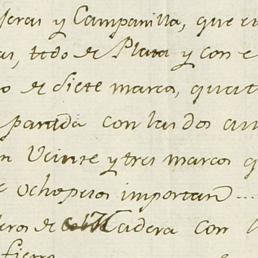 geras y Campanilla, que
as, todo de Plata y con
o de Siete marcos, quat
parada con las dos
n Veinte y tres marcos q
ocho pesos importan
eros de Madera con
fierro